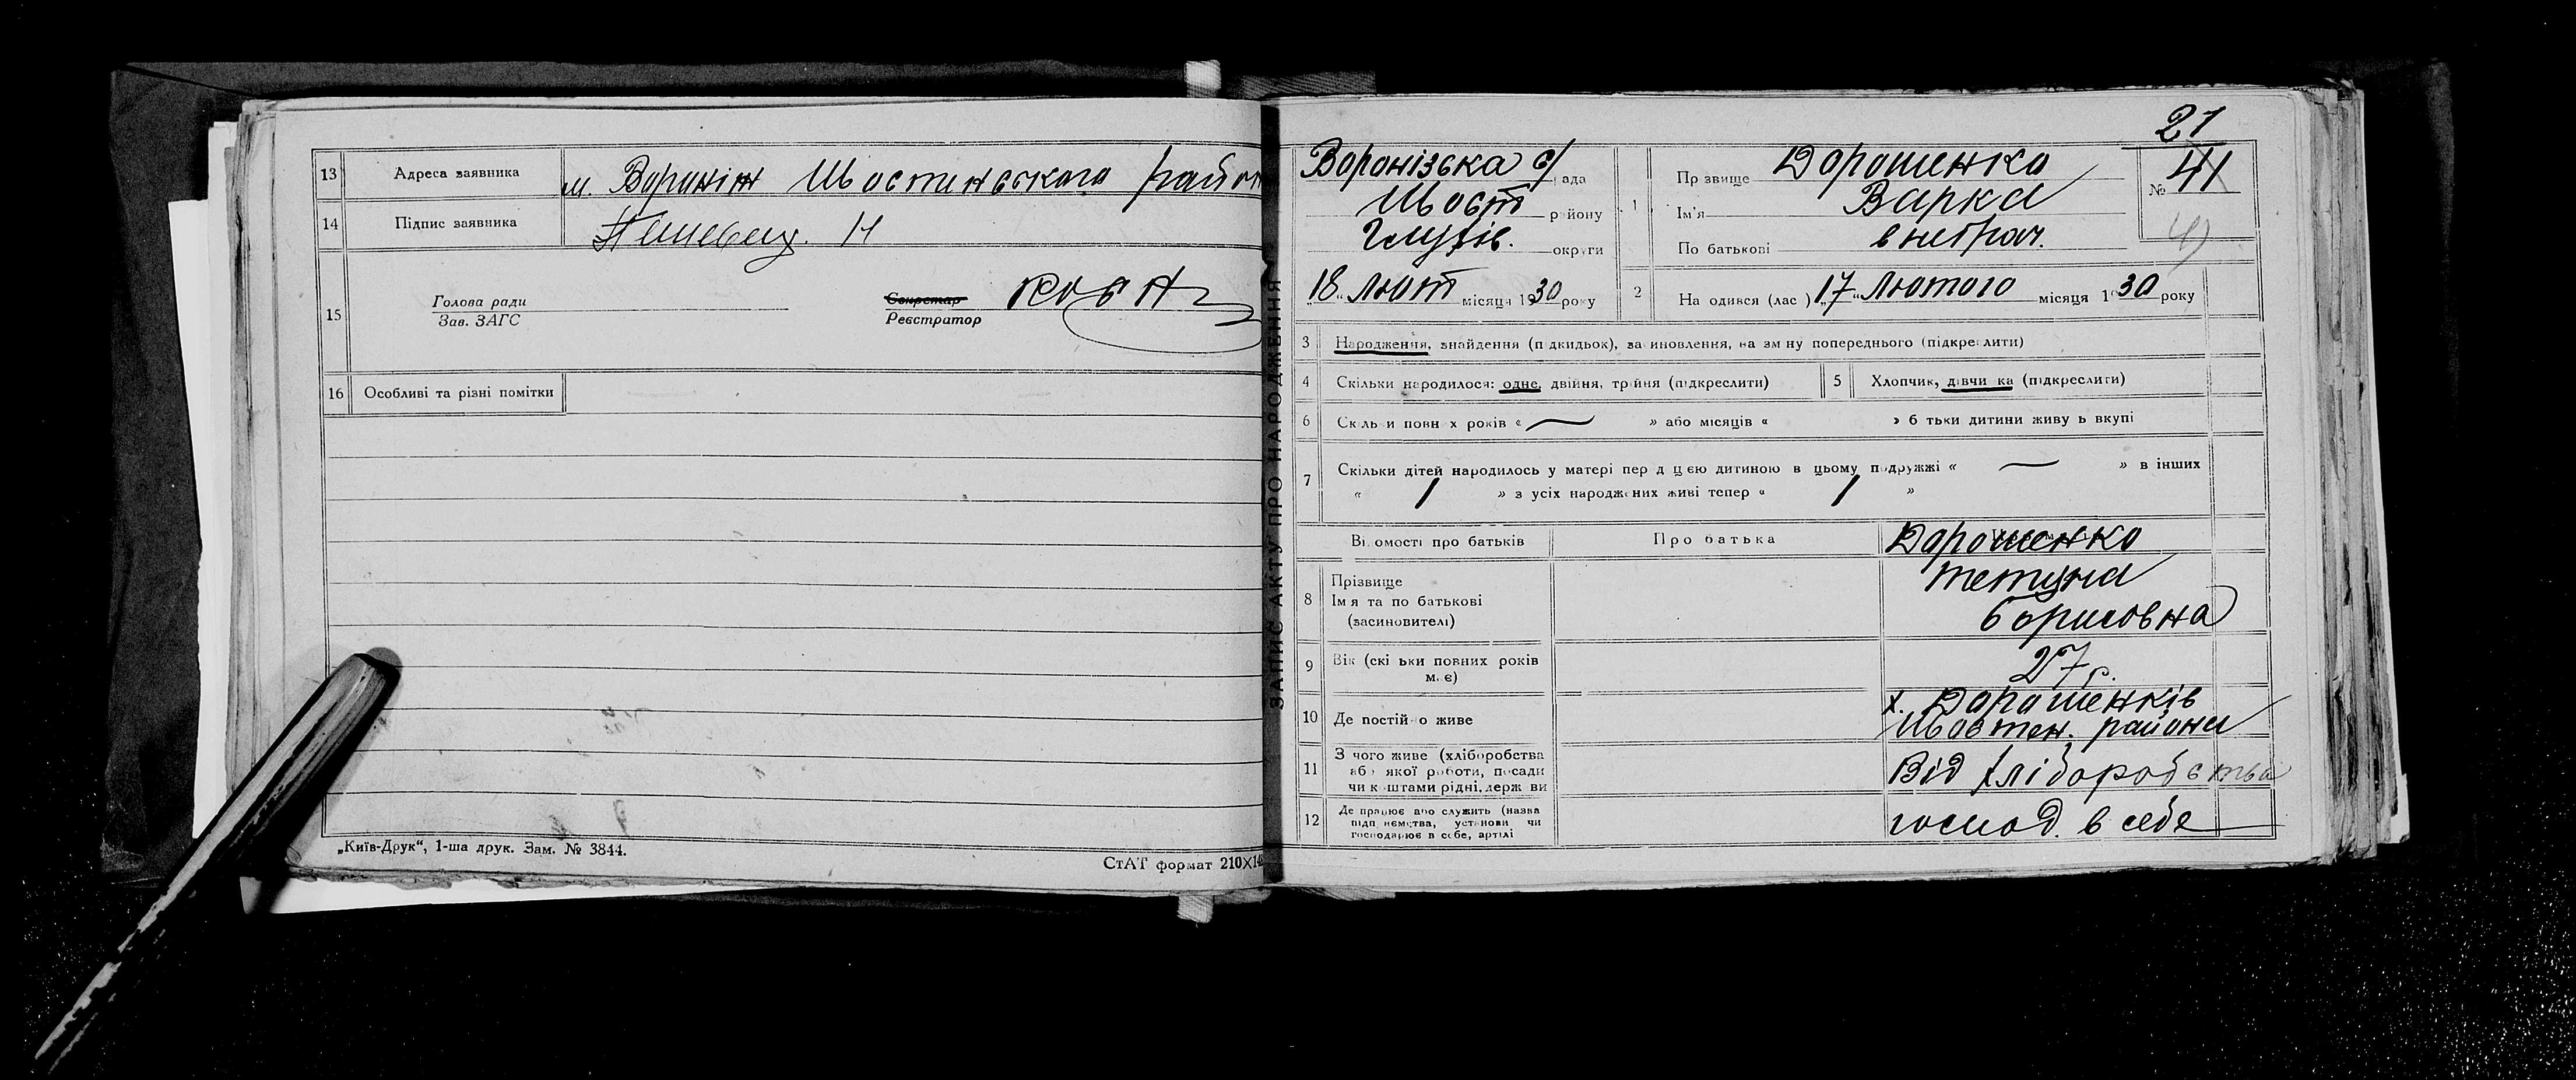 13 Адреса заявника м. Вороніж Шостенського район
14 Підпис заявника Н
15 Голова ради
Зав. ЗАГС
Секретар
Реєстратор
16 Особливі та різні помітки
„Київ-Друк“, 1-ша друк. Зам. № 3844.
СтАТ формат 210Х14
ЗАПИС АКТУ ПРО НАРОДЖЕННЯ
21
Воронізька с/ ада
Шост району
Глухів. округи
„18“ Лют місяця 1930 року
1 Пр звище Дорошенко
Ім'я Варка
По батькові внебрач.
№ 41
41
2 На одився (лас ) „17“ Лютого місяця 1930 року
3 Народження, знайдення (п дкидьок), за иновлення, на зм ну попереднього (підкре лити)
4 Скільки народилося: одне, двійня, трійня (підкреслити)
5 Хлопчик, дівчи ка (підкреслити)
6 Скіль и повн х років « — » або місяців « » б тьки дитини живу ь вкупі
7 Скільки дітей народилось у матері пер д ц єю дитиною в цьому подружжі « — » в інших
« 1 » з усіх народжених живі тепер « 1 »
Ві омості про батьків Про батька
Дорошенко
8 Прізвище
Ім я та по батькові
(засиновителі)
Тетяна
Борисовна
9 Вік (скі ьки повних років
м. є)
27 р.
10 Де постій о живе
х. Дорошенків
Шостен. району
11 З чого живе (хліборобства
аб якої роботи, посади
чи к штами рідні, держ ви
Від хліборобства
12 Де працює або служить (назва
підп иємства, установи чи
господарює в себе, артілі
господ. в себе